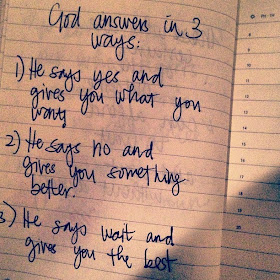 God answers in 3
ways:
1) He says yes and
gives you what you
want.
2) He says no and
gives you something
better.
3) He says wait and
gives you the best